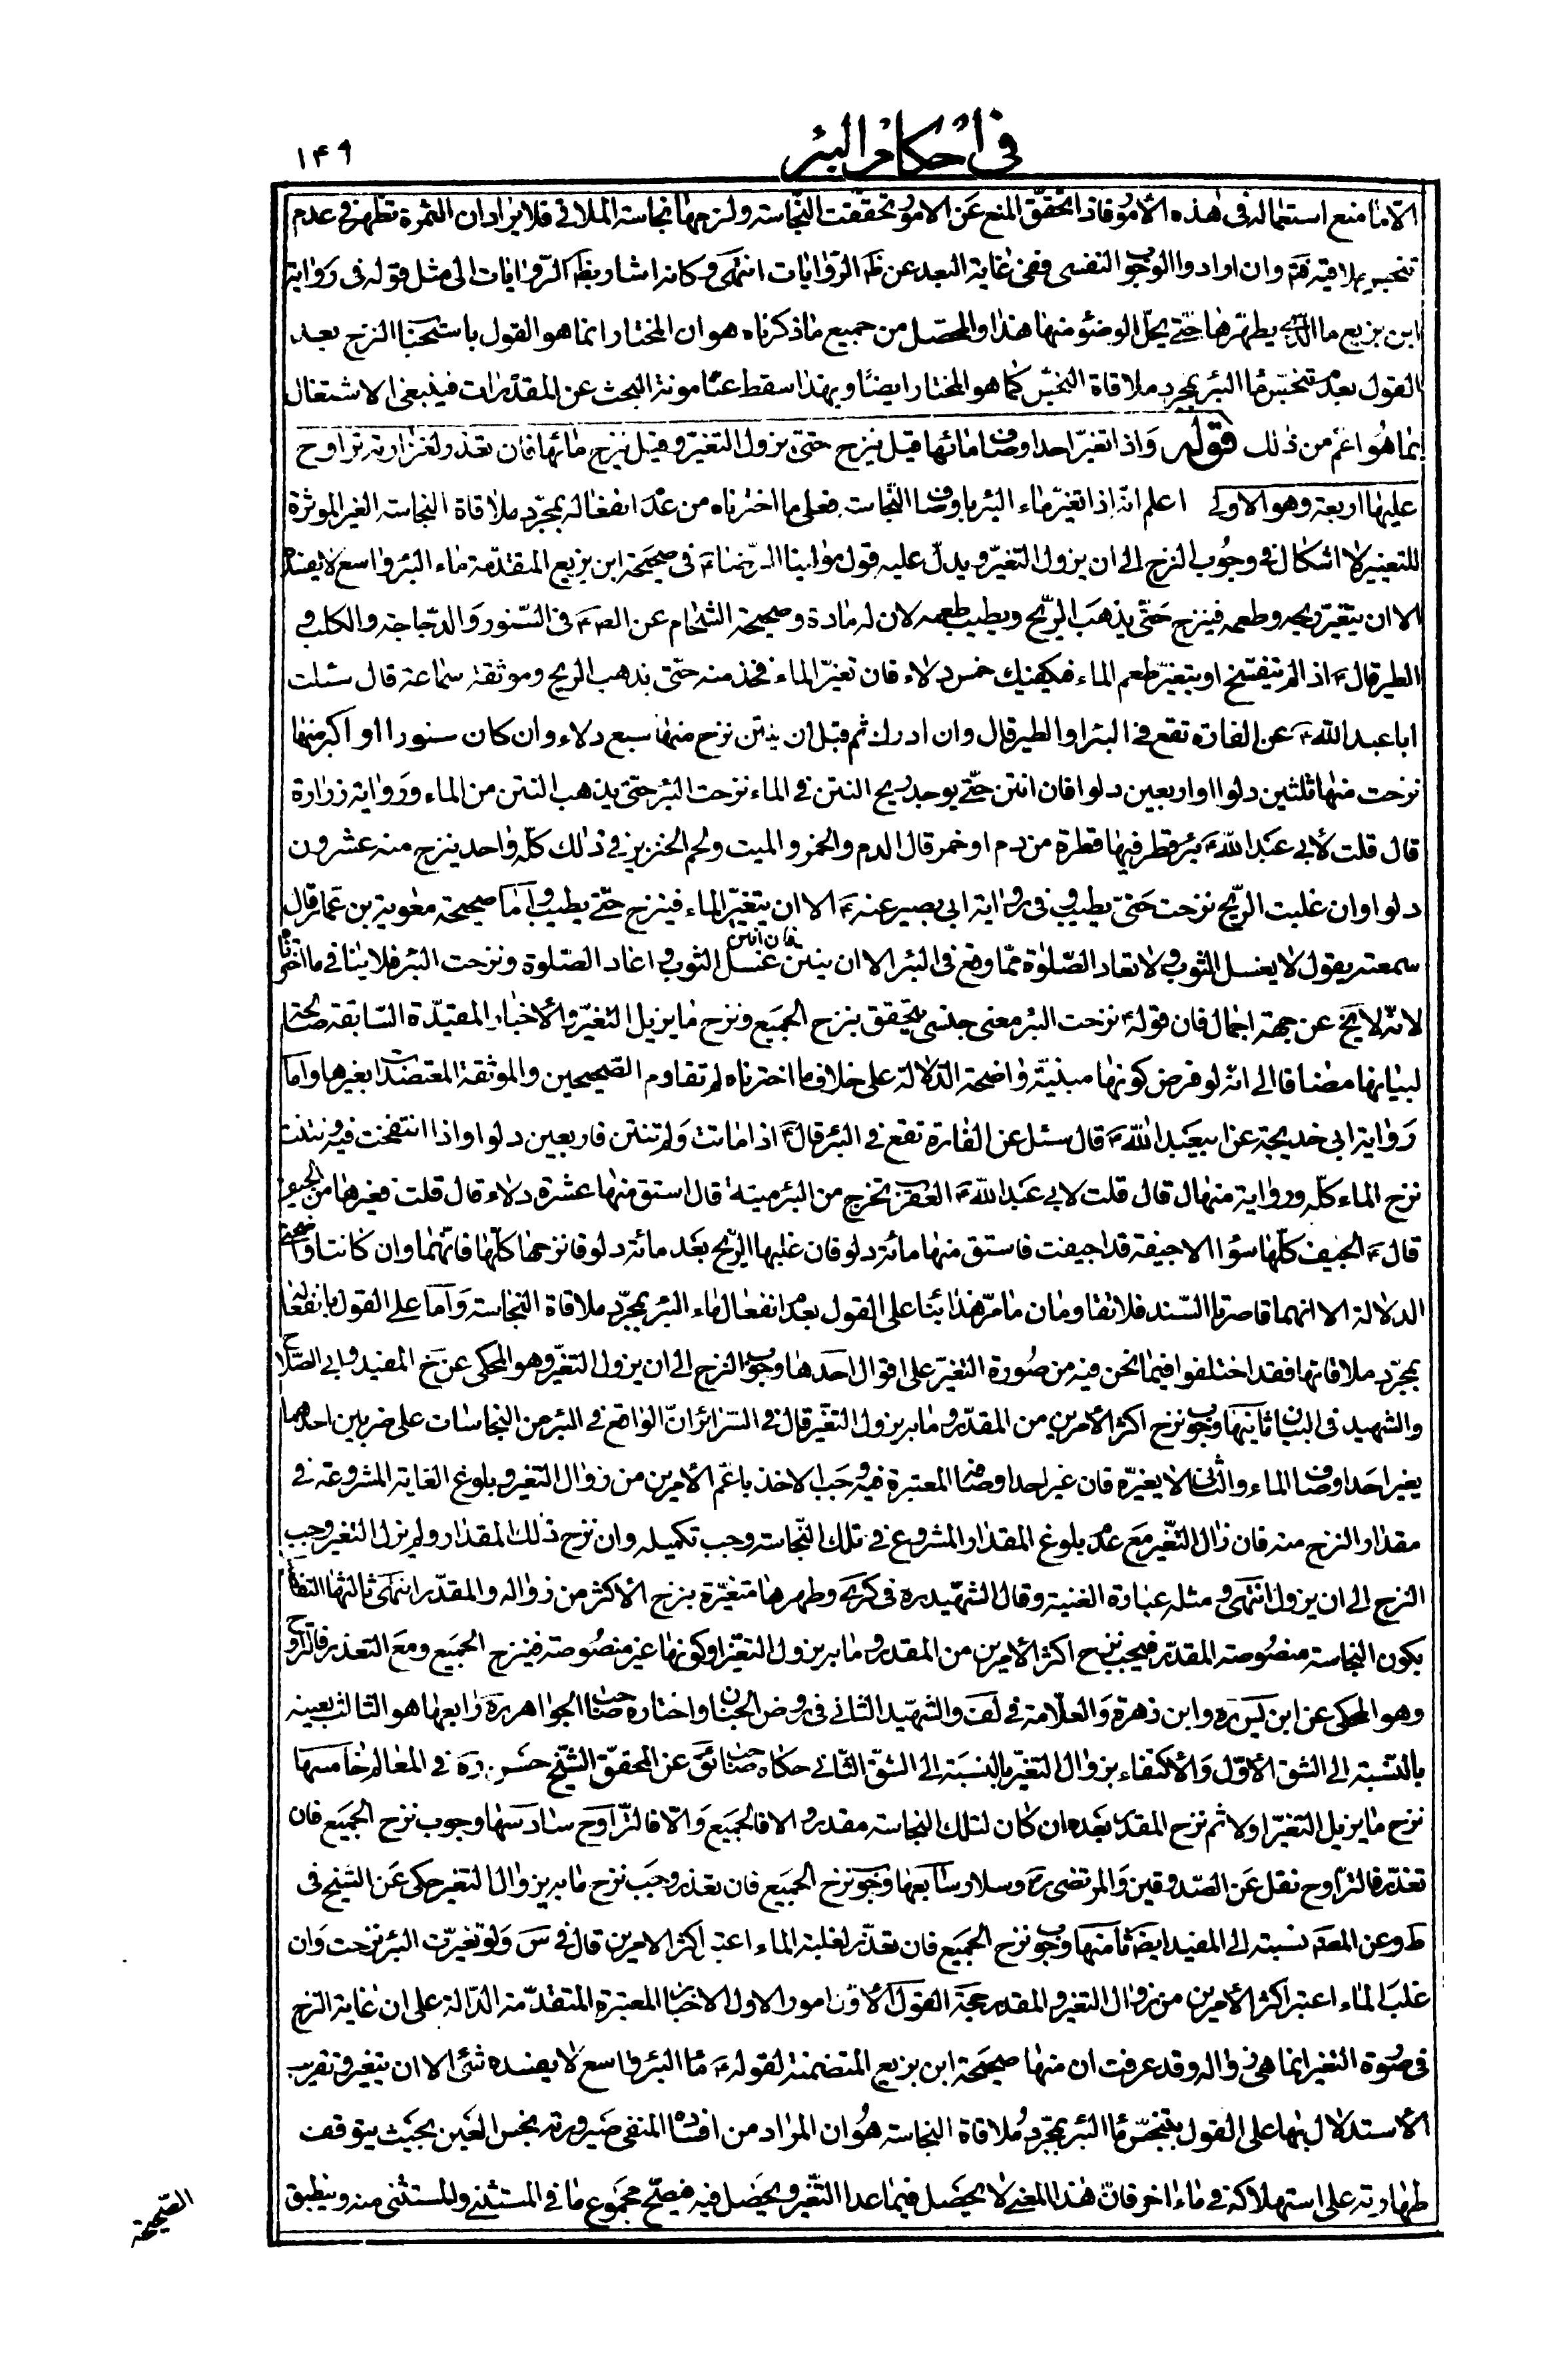 في احكام البئر
١۴٩
الا ما منع استعماله فى هذه الأمور فاذا تحقّق المنع عن الامور تحققت النّجاسة ولزمها نجاسة الملاقى فلا يراد ان الثمرة تظهر فى عدم
تنجيس ملاقيه فتم وان ارادوا الوجوب النفسى ففى غاية البعد عن ظ الرّوايات انتهى وكانه اشار بظ الرّوايات الى مثل قوله فى رواية
ابن بزيع ما الذى يطهّرها حتّى يحلّ الوضوء منها هذا والمحصّل من جميع ما ذكرناه هو ان المختار انما هو القول باستحباب النزح بعد
القول بعدم تنجّس ماء البئر بمجرد ملاقاة النجس كما هو المختار ايضًا وبهذا سقط عنّا مونة البحث عن المقدّرات فينبغى الاشتغال
بما هو اعم من ذلك قوله واذا تغيّر احد اوصاف مائها قيل ينزح حتى يزول التغيّر وقيل ينزح مائها فان تعذر لغزارته تراوح
عليها اربعة وهو الاولى اعلم انّه اذا تغيّر ماء البئر باوصاف النّجاسة فعلى ما اخترناه من عدم انفعاله بمجرّد ملاقاة النجاسة الغير الموثرة
للتغيير لا اشكال فى وجوب النزح الى ان يزول التغيّر ويدلّ عليه قول مولينا الرّضا ع فى صحيحة ابن بزيع المتقدّمة ماء البئر واسع لا يفسده
الا ان يتغيّر ريحه وطعمه فينزح حتّى يذهب الرّيح ويطيب طعمه لان له مادة وصحيحة الشحّام عن الص ع فى السّنور والدّجاجة والكلب و
الطير قال ع اذا لم يتفسّخ او يتغيّر طعم الماء فيكفيك خمس دلاء فان تغيّر الماء فخذ منه حتّى يذهب الريح وموثقة سماعة قال سئلت
ابا عبد الله ع عن الفارة تقع فى البئر او الطير قال وان ادركته قبل ان ينتن نزح منها سبع دلاء وان كان سنورا او اكبر منها
نزحت منها ثلثين دلوا او اربعين دلوا فان انتن حتّى يوجد ريح النتن فى الماء نزحت البئر حتى يذهب النتن من الماء ورواية زرارة
قال قلت لأبى عبد الله ع بئر قطر فيها قطرة من دم او خمر قال الدم والخمر والميت ولحم الخنزير فى ذلك كلّه واحد ينزح منه عشرون
دلوا وان غلبت الرّيح نزحت حتى تطيب وفى رواية ابى بصير عنه ع الا ان يتغيّر الماء فينزح حتّى يطيب واما صحيحة معوية بن عمّار قال
سمعته يقول لا يغسل الثوب ولا تعاد الصّلوة ممّا وقع فى البئر الا ان ينتن فان انتن غسل الثوب واعاد الصّلوة ونزحت البئر فلا ينافى ما اخترناه
لانّه لا يخ عن جهة اجمال فان قوله ع نزحت البئر معنى جنسى يتحقق بنزح الجميع ونزح ما يزيل التغيّر والأخبار المقيّدة السّابقة صالحة
لبيانها مضافا الى انه لو فرض كونها مبنيّة واضحة الدّلالة على خلاف ما اخترناه لم تقاوم الصّحيحين والموثقة المعتضدات بغيرها واما
رواية ابى خديجة عن ابيعبد الله ع قال سئل عن الفارة تقع فى البئر قال ع اذا ماتت ولم تنتن فاربعين دلوا واذا انتفخت فيه ونتنت
نزح الماء كلّه ورواية منهال قال قلت لابى عبد الله ع العقرب تخرج من البئر ميتة قال استق منها عشرة دلاء قال قلت فغيرها من الجيف
قال ع الجيف كلّها سواء الا جيفة قد اجيفت فاستق منها مائة دلو فان غلبها الرّيح بعد مائة دلو فانزحها كلّها فانّهما وان كانتا واضحتى
الدلالة الا انهما قاصرتا السّند فلا تقاومان ما مرّ هذا بناء على القول بعدم انفعال ماء البئر بمجرّد ملاقاة النّجاسة واما على القول بانفعاله
بمجرّد ملاقاتها فقد اختلفوا فيما نحن فيه من صورة التغيّر على اقوال احدها وجوب النزح الى ان يزول التغيّر وهو المحكى عن خ المفيد وابى الصّلاح
والشهيد فى البيان ثانيها وجوب نزح اكثر الأمرين من المقدّر وما به يزول التغيّر قال فى السّرائر انّ الواقع فى البئر من النجاسات على ضربين احدهما
يغير احد اوصاف الماء والثانى لا يغيّره فان غير احد اوصافه المعتبرة فيه وجب الاخذ باعم الأمرين من زوال التغير وبلوغ الغاية المشروعة فى
مقدار النزح منه فان زال التغيّر مع عدم بلوغ المقدار المشروع فى تلك النّجاسة وجب تكميله وان نزح ذلك المقدار ولم يزل التغير وجب
النزح الى ان يزول انتهى ومثله عبارة الغنية وقال الشهيد ره فى كرى وطهرها متغيّرة بنزح الأكثر من زواله والمقدّر انتهى ثالثها التفصيل
بكون النجاسة منصوصة المقدّر فيجب نزح اكثر الأمرين من المقدر وما به يزول التغيّر او كونها غير منصوصة فينزح الجميع ومع التعذر فالتراوح
وهو المحكى عن ابن يس ره وابن زهرة والعلّامة فى لف والشهيد الثانى فى روض الجنان واختاره صاحب الجواهر ره رابعها هو الثالث بعينه
بالنّسبة الى الشق الأوّل والأكتفاء بزوال التغيّر بالنسبة الى الشق الثّانى حكاه صاحب ئق عن المحقق الشّيخ حسن ره فى المعالم خامسها
نزح ما يزيل التغيّر اولا ثم نزح المقدّر بعده ان كان لتلك النجاسة مقدر والا فالجميع والا فالتّراوح سادسها وجوب نزح الجميع فان
تعذّر فالتراوح نقل عن الصّدوقين والمرتضى ره وسلار سابعها وجوب نزح الجميع فان تعذر وجب نزح ما به يزول التغير حكى عن الشيخ فى
ط وعن المص نسبته الى المفيد ايض ثامنها وجوب نزح الجميع فان تعذّر لغلبة الماء اعتبر اكثر الامرين قال فى س ولو تغيّرت البئر نزحت وان
غلب الماء اعتبر اكثر الأمرين من زوال التغير والمقدر حجة القول الأوّل امور الاول الاخبار المعتبرة المتقدّمة الدّالة على ان غاية النزح
فى صورة التغير انما هى زواله وقد عرفت ان منها صحيحة ابن بزيع المتضمنة لقوله ع ماء البئر واسع لا يفسده شئ الا ان يتغير وتقريب
الأستدلال بها على القول بتنجّس ماء البئر بمجرّد ملاقاة النجاسة هو ان المراد من افساده المنفى صيرورته بخس العين بحيث يتوقف
طهارته على استهلاكه فى ماء اخر فانّ هذا المعنى لا يحصل فيما عدا التغيّر ويحصل فيه فيصحّ مجموع ما فى المستثنى والمستثنى منه وينطبق
الصّحيحة